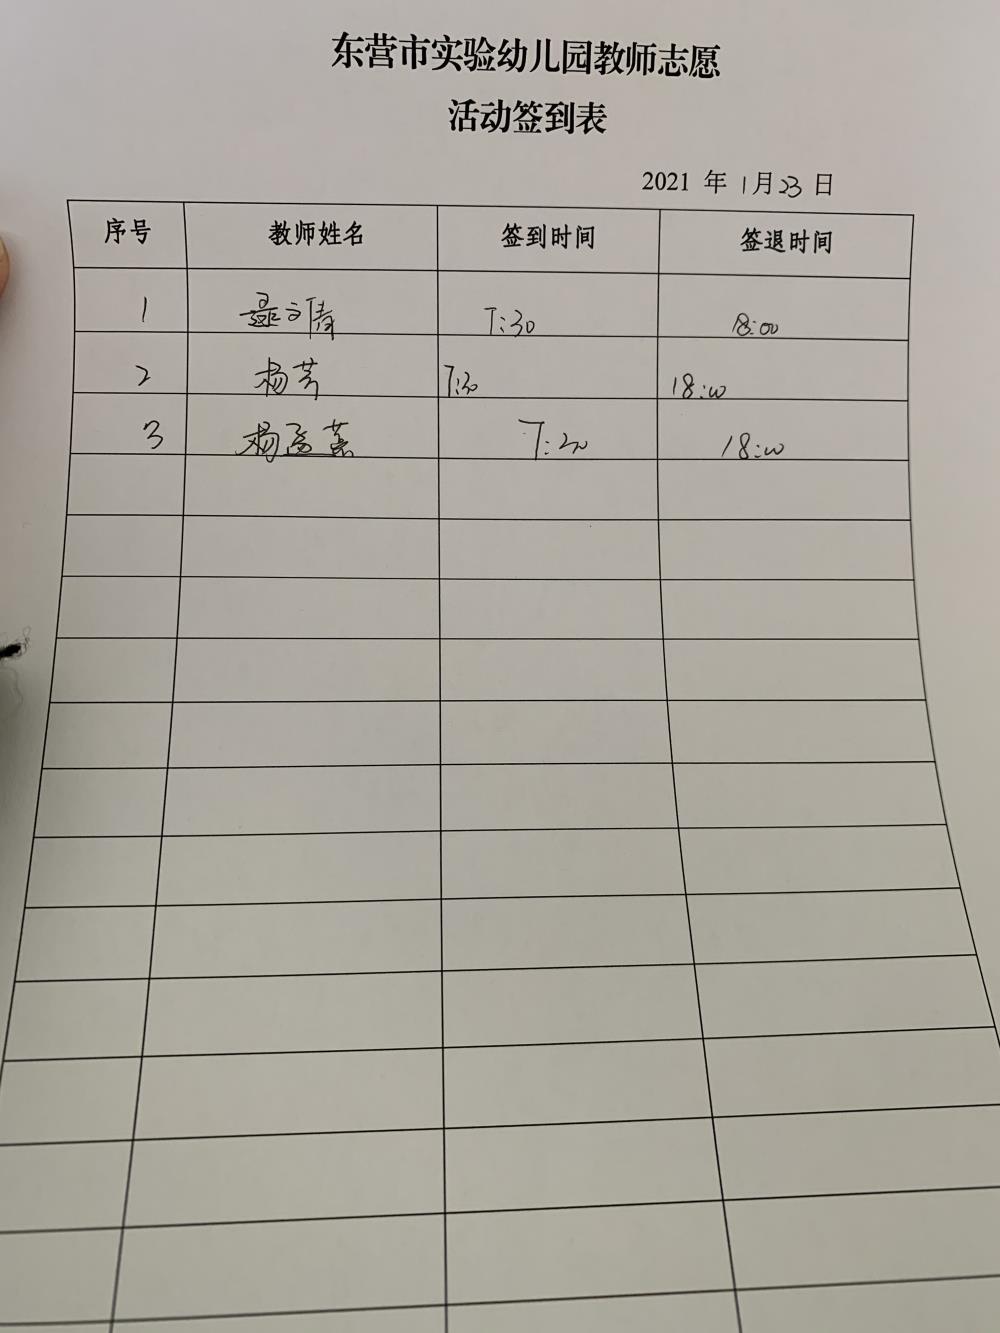 东营市实验幼儿园教师志愿
活动签到表
2021 年 1月23 日
序号 教师姓名 签到时间 签退时间
1 聂文倩 7:30 18:00
2 杨芳 7:30 18:00
3 杨孟蕙 7:30 18:00